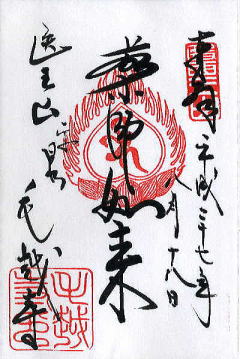 奉拝
平成二十七年
八月十八日
薬師如来
医王山
毛越寺